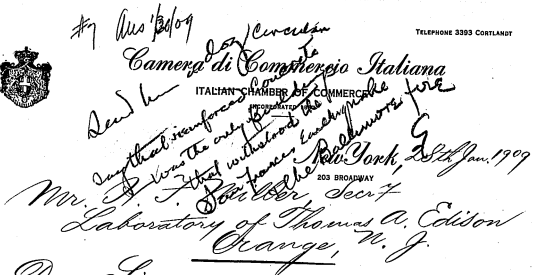 #7 Ans 1/30/09
TELEPHONE 3393 CORTLANDT
Camera di Commercio Italiana
ITALIAN CHAMBER OF COMMERCE
INCORPORATED
Send him doz circular
say that reinforced concrete
was the only
that withstood the
San Frances Earthquake
& the Baltimore fire
New York, 28th Jan. 1909
203 BROADWAY
Mr. Secry
Laboratory of Thomas A. Edison
Orange, N. J.